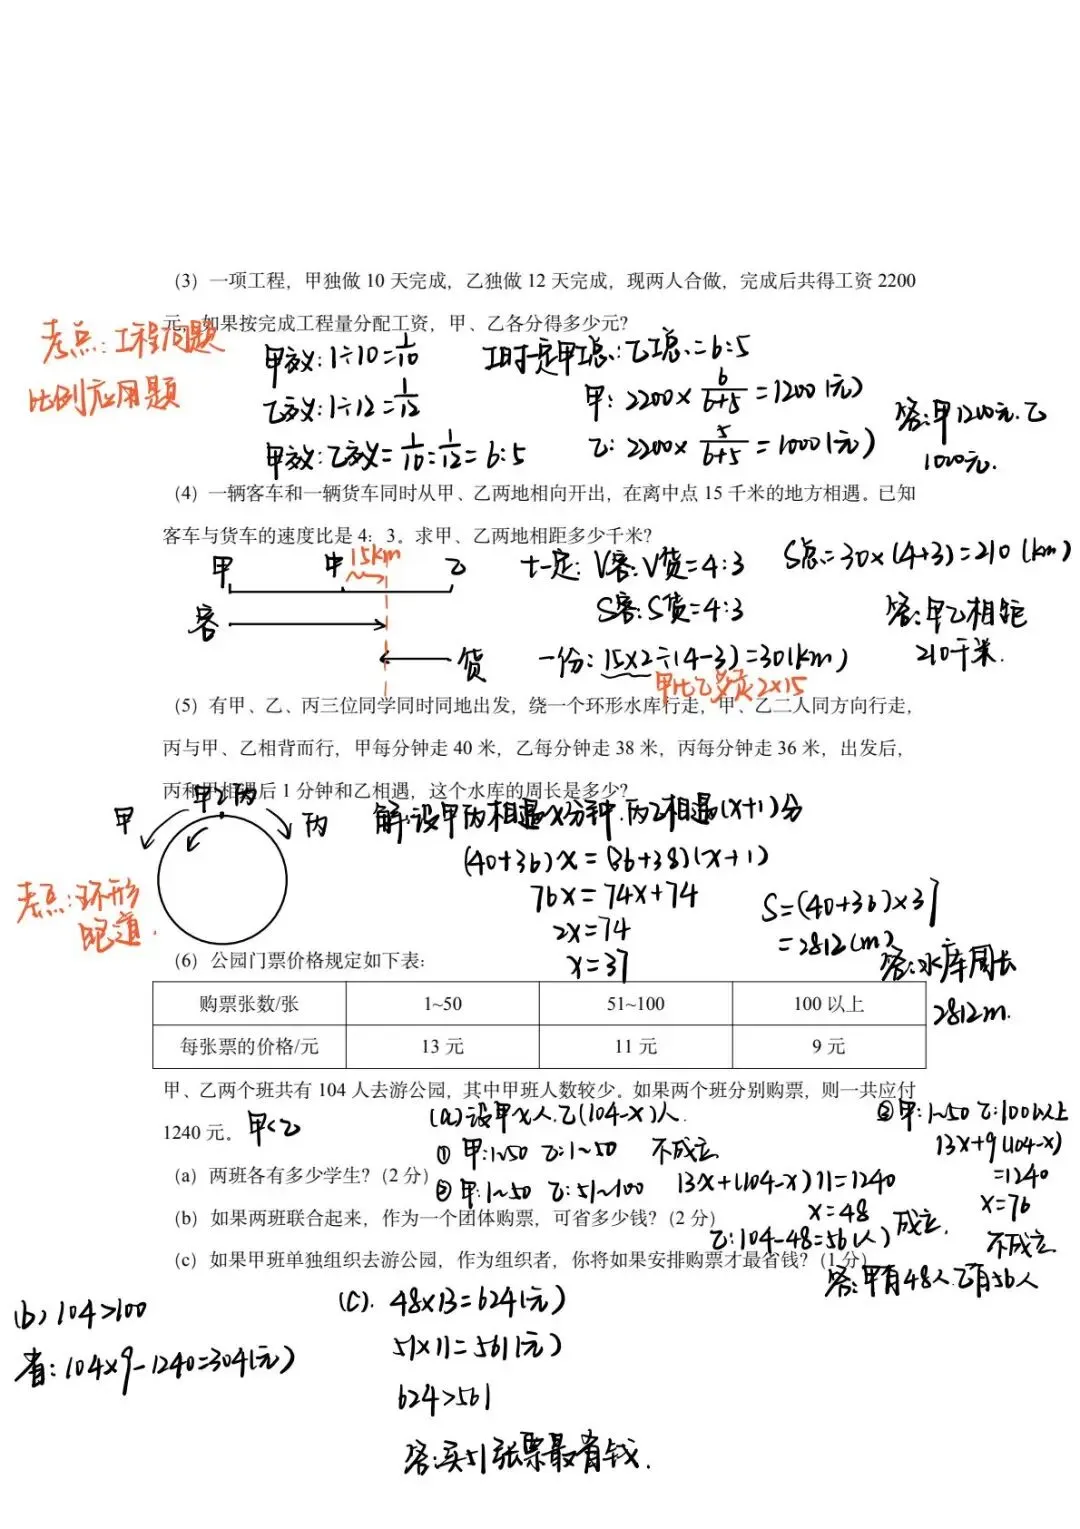 （3）一项工程，甲独做 10 天完成，乙独做 12 天完成，现两人合做，完成后共得工资 2200
元，如果按完成工程量分配工资，甲、乙各分得多少元？
考点：工程问题
比例应用题
甲效：1÷10=1/10
乙效：1÷12=1/12
甲效：乙效=1/10：1/12=6：5
工时一定 甲工总：乙工总=6：5
甲：2200×6/(6+5)=1200（元）
乙：2200×5/(6+5)=1000（元）
答：甲1200元.乙
1000元.
（4）一辆客车和一辆货车同时从甲、乙两地相向开出，在离中点 15 千米的地方相遇。已知
客车与货车的速度比是 4：3。求甲、乙两地相距多少千米？
甲 中 15km 乙
客
货
t一定：V客：V货=4：3
S客：S货=4：3
一份：15×2÷(4-3)=30(km)
甲比乙多走2×15
S总=30×(4+3)=210(km)
答：甲乙相距
210千米.
（5）有甲、乙、丙三位同学同时同地出发，绕一个环形水库行走，甲、乙二人同方向行走，
丙与甲、乙相背而行，甲每分钟走 40 米，乙每分钟走 38 米，丙每分钟走 36 米，出发后，
丙和甲相遇后 1 分钟和乙相遇，这个水库的周长是多少？
甲乙丙
甲 丙
考点：环形
跑道.
解：设甲丙相遇x分钟.丙乙相遇(x+1)分
(40+36)x=(36+38)(x+1)
76x=74x+74
2x=74
x=37
S=(40+36)×37
=2812(m)
答：水库周长
2812m.
（6）公园门票价格规定如下表：
购票张数/张 1~50 51~100 100 以上
每张票的价格/元 13 元 11 元 9 元
甲、乙两个班共有 104 人去游公园，其中甲班人数较少。如果两个班分别购票，则一共应付
1240 元。
甲<乙
（a）两班各有多少学生？（2 分）
（b）如果两班联合起来，作为一个团体购票，可省多少钱？（2 分）
（c）如果甲班单独组织去游公园，作为组织者，你将如果安排购票才最省钱？（1 分）
(a)设甲x人.乙(104-x)人.
① 甲：1~50 乙：1~50 不成立
② 甲：1~50 乙：51~100 13x+(104-x)11=1240
x=48
乙：104-48=56(人) 成立.
③ 甲：1~50 乙：100以上
13x+9(104-x)
=1240
x=76
不成立
答：甲有48人.乙有56人
(b) 104>100
省：104×9-1240=304(元)
(C). 48×13=624(元)
51×11=561(元)
624>561
答：买51张票最省钱.